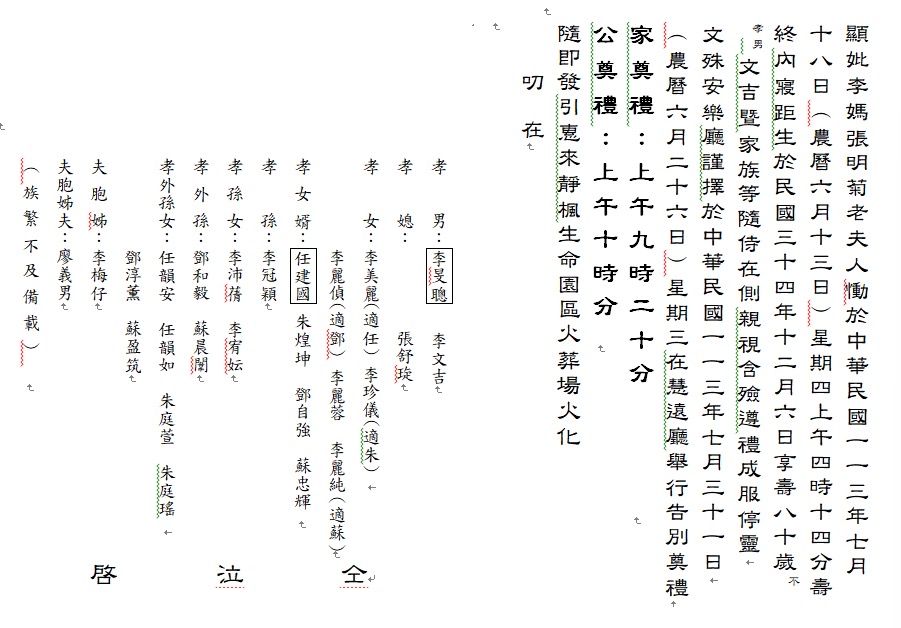 顯妣李媽張明菊老夫人慟於中華民國一一三年七月
十八日（農曆六月十三日）星期四上午四時十四分壽
終內寢距生於民國三十四年十二月六日享壽八十歲不
孝男文吉暨家族等隨侍在側親視含殮遵禮成服停靈
文殊安樂廳謹擇於中華民國一一三年七月三十一日
（農曆六月二十六日）星期三在慧遠廳舉行告別奠禮
家奠禮：上午九時二十分
公奠禮：上午十時分
隨即發引悳來靜楓生命園區火葬場火化
叨在
孝男：李旻聰 李文吉
孝媳： 張舒琁
孝女：李美麗(適任) 李珍儀(適朱)
李麗偵(適鄧) 李麗蓉 李麗純(適蘇)
孝女婿：任建國 朱煌坤 鄧自強 蘇忠輝
孝孫：李冠穎
孝孫女：李沛蒨 李宥妘
孝外孫：鄧和毅 蘇晨闓
孝外孫女：任韻安 任韻如 朱庭萱 朱庭瑤
鄧淳薰 蘇盈筑
夫胞姊：李梅仔
夫胞姊夫：廖義男
（族繁不及備載）
仝 泣 啓